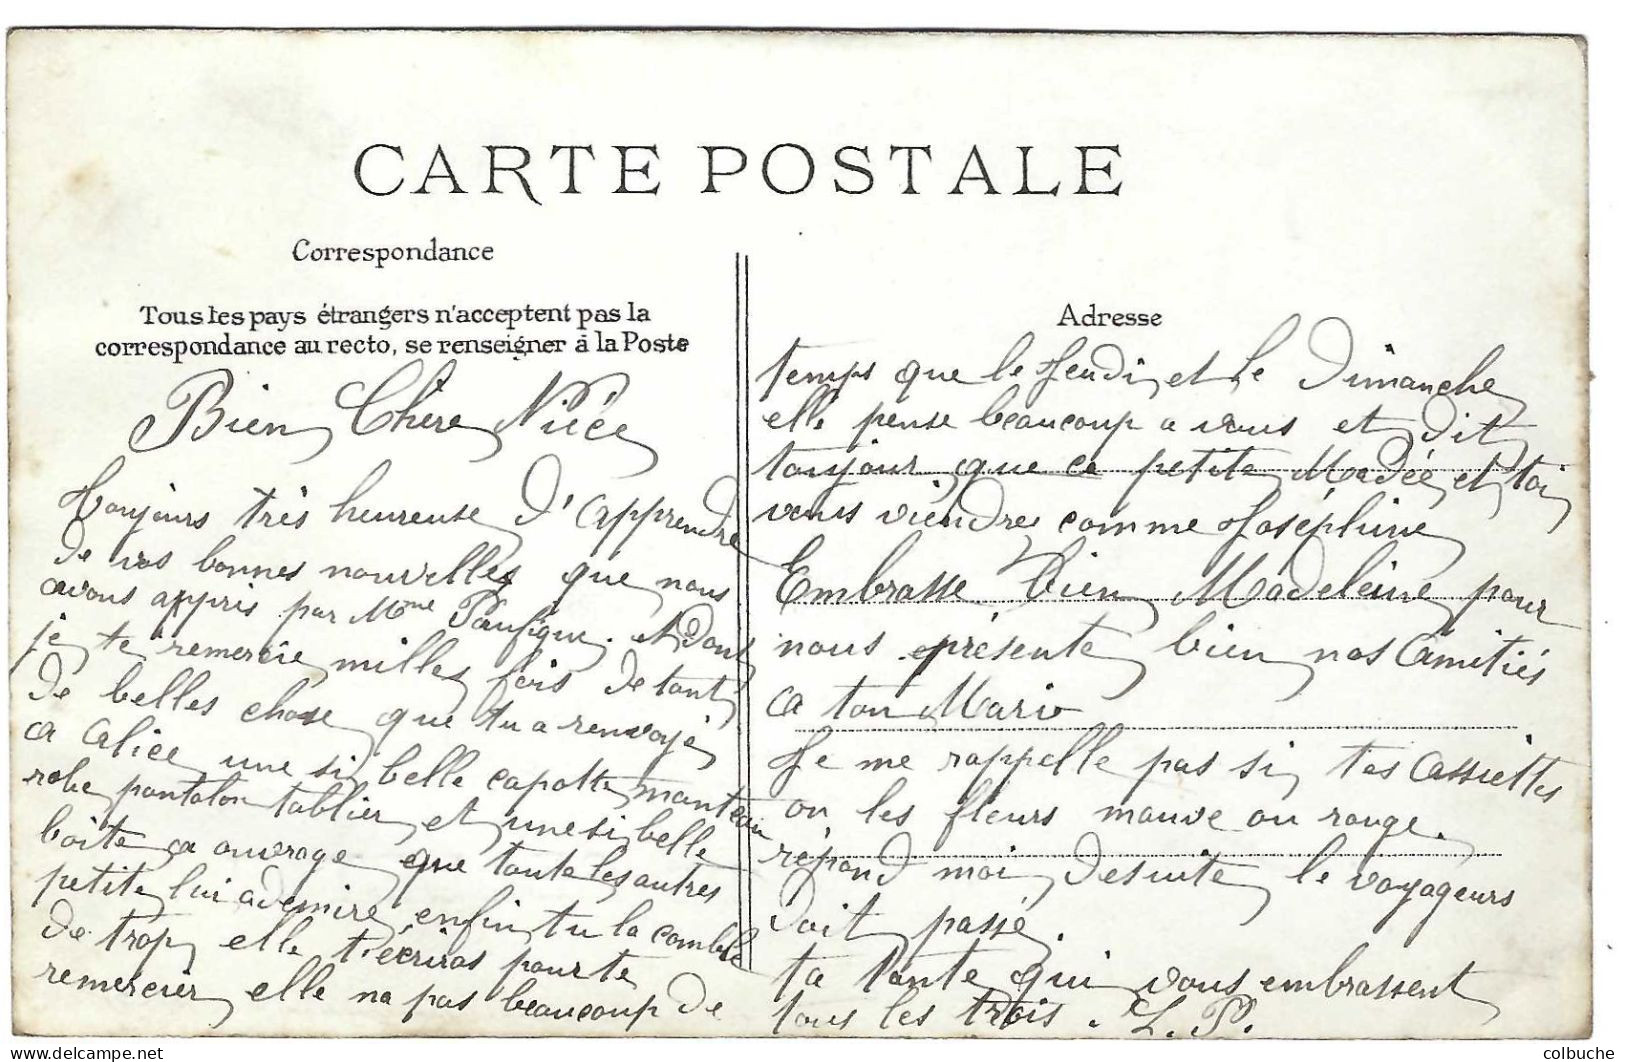 CARTE POSTALE
Correspondance
Tous les pays étrangers n'acceptent pas la
correspondance au recto, se renseigner à la Poste
Bien Chère Nièce
Toujours très heureuse d'apprendre
de vos bonnes nouvelles que nous
avons appris par Mme
je te remercie milles fois de tant
de belles chose que tu a renvoyé
a Alice une si belle capotte manteau
robe pantalon tablier et une si belle
boite a ouvrage que toute les autres
petite lui ademire enfin tu la comble
de trop elle t'écriras pour te
remercier elle na pas beaucoup de
Adresse
temps que le Jeudi et le Dimanche
elle pense beaucoup a vous et dit
toujour que ce petite Madée et toi
vous viendres comme Joséphine
Embrasse bien Madeleine pour
nous présente bien nos amitiés
a ton Mario
Je me rappelle pas si tes assiettes
on les fleurs mauve ou rouge.
répond moi desuite le voyageurs
doit passé.
ta tante qui vous embrassent
tous les trois. L. P.
colbuche